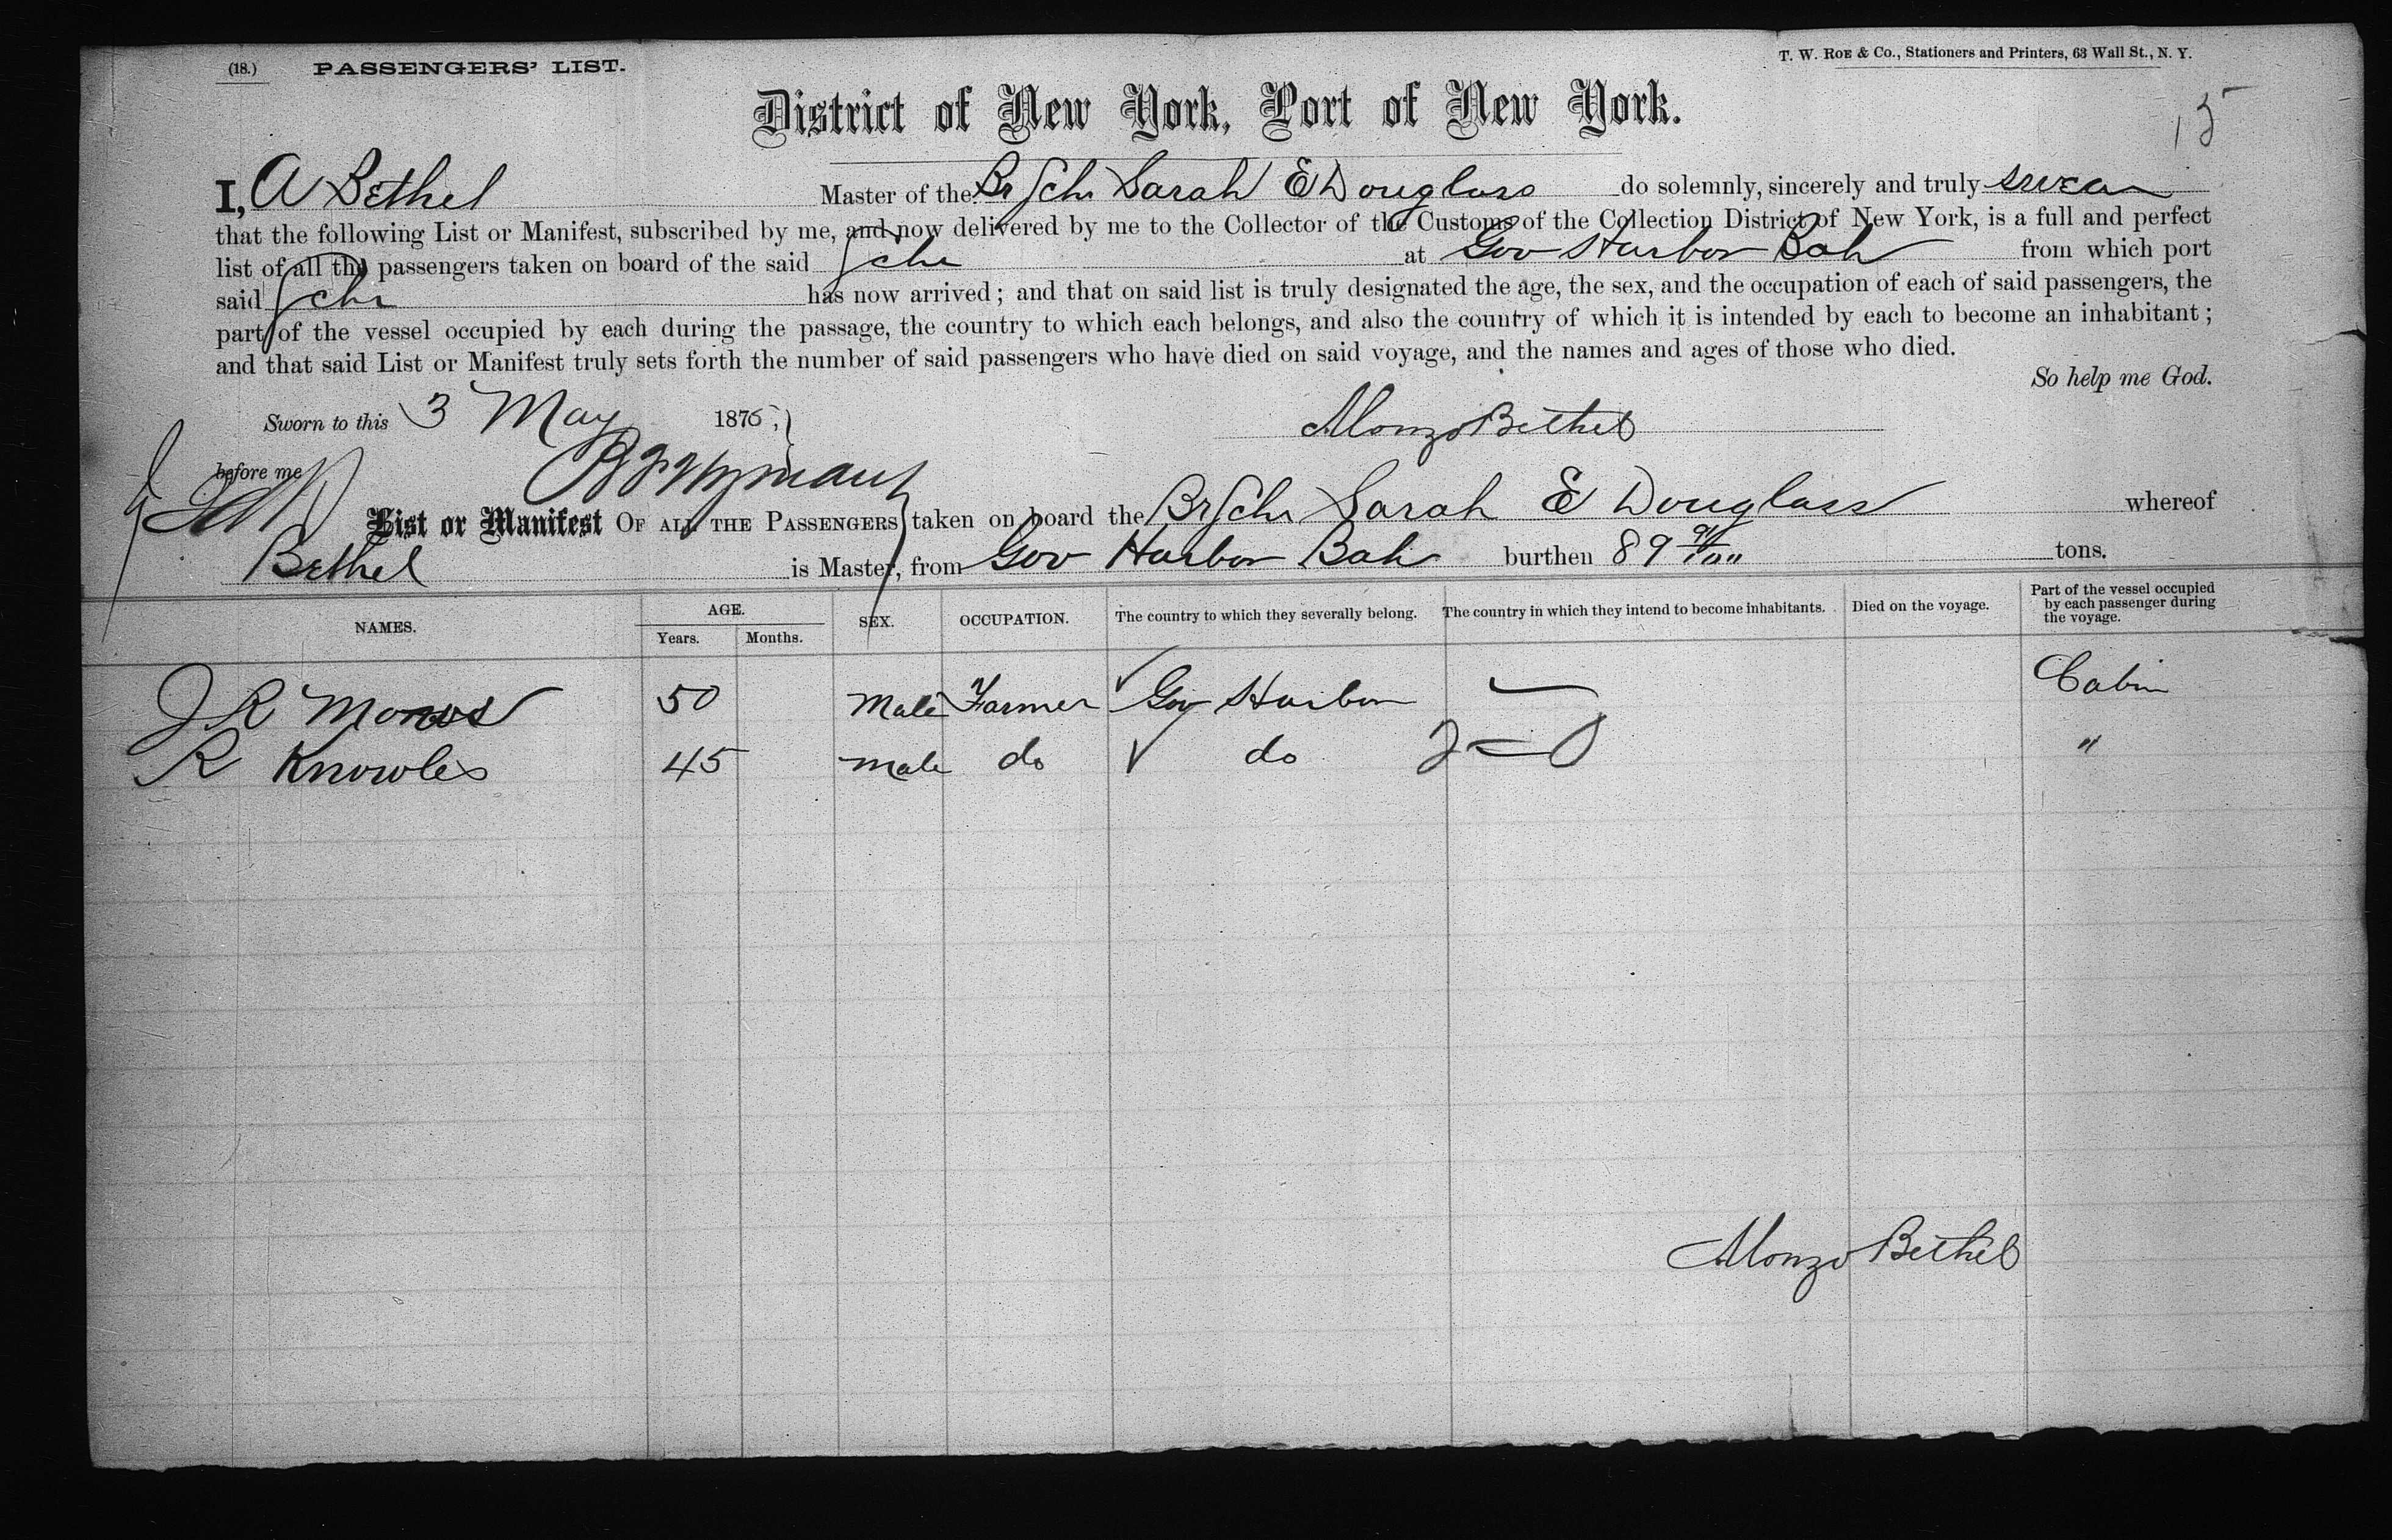 (18.) PASSENGERS' LIST.
T. W. ROE & Co., Stationers and Printers, 63 Wall St., N. Y.
District of New York, Port of New York.
15
I, A Bethel Master of the Br Schr Sarah E Douglass do solemnly, sincerely and truly swear
that the following List or Manifest, subscribed by me, and now delivered by me to the Collector of the Customs of the Collection District of New York, is a full and perfect
list of all the passengers taken on board of the said Schr at Gov Harbor Bah from which port
said Schr has now arrived; and that on said list is truly designated the age, the sex, and the occupation of each of said passengers, the
part of the vessel occupied by each during the passage, the country to which each belongs, and also the country of which it is intended by each to become an inhabitant;
and that said List or Manifest truly sets forth the number of said passengers who have died on said voyage, and the names and ages of those who died.
So help me God.
Sworn to this 3 May 1876,
Alonzo Bethel
before me
List or Manifest OF ALL THE PASSENGERS taken on board the Br Schr Sarah E Douglass whereof
Bethel is Master, from Gov Harbor Bah burthen 89 91/100 tons.
NAMES. AGE. Years. Months. SEX. OCCUPATION. The country to which they severally belong. The country in which they intend to become inhabitants. Died on the voyage. Part of the vessel occupied by each passenger during the voyage.
J R 50 Male Farmer Gov Harbor Cabin
R Knowles 45 Male do do "
Alonzo Bethel